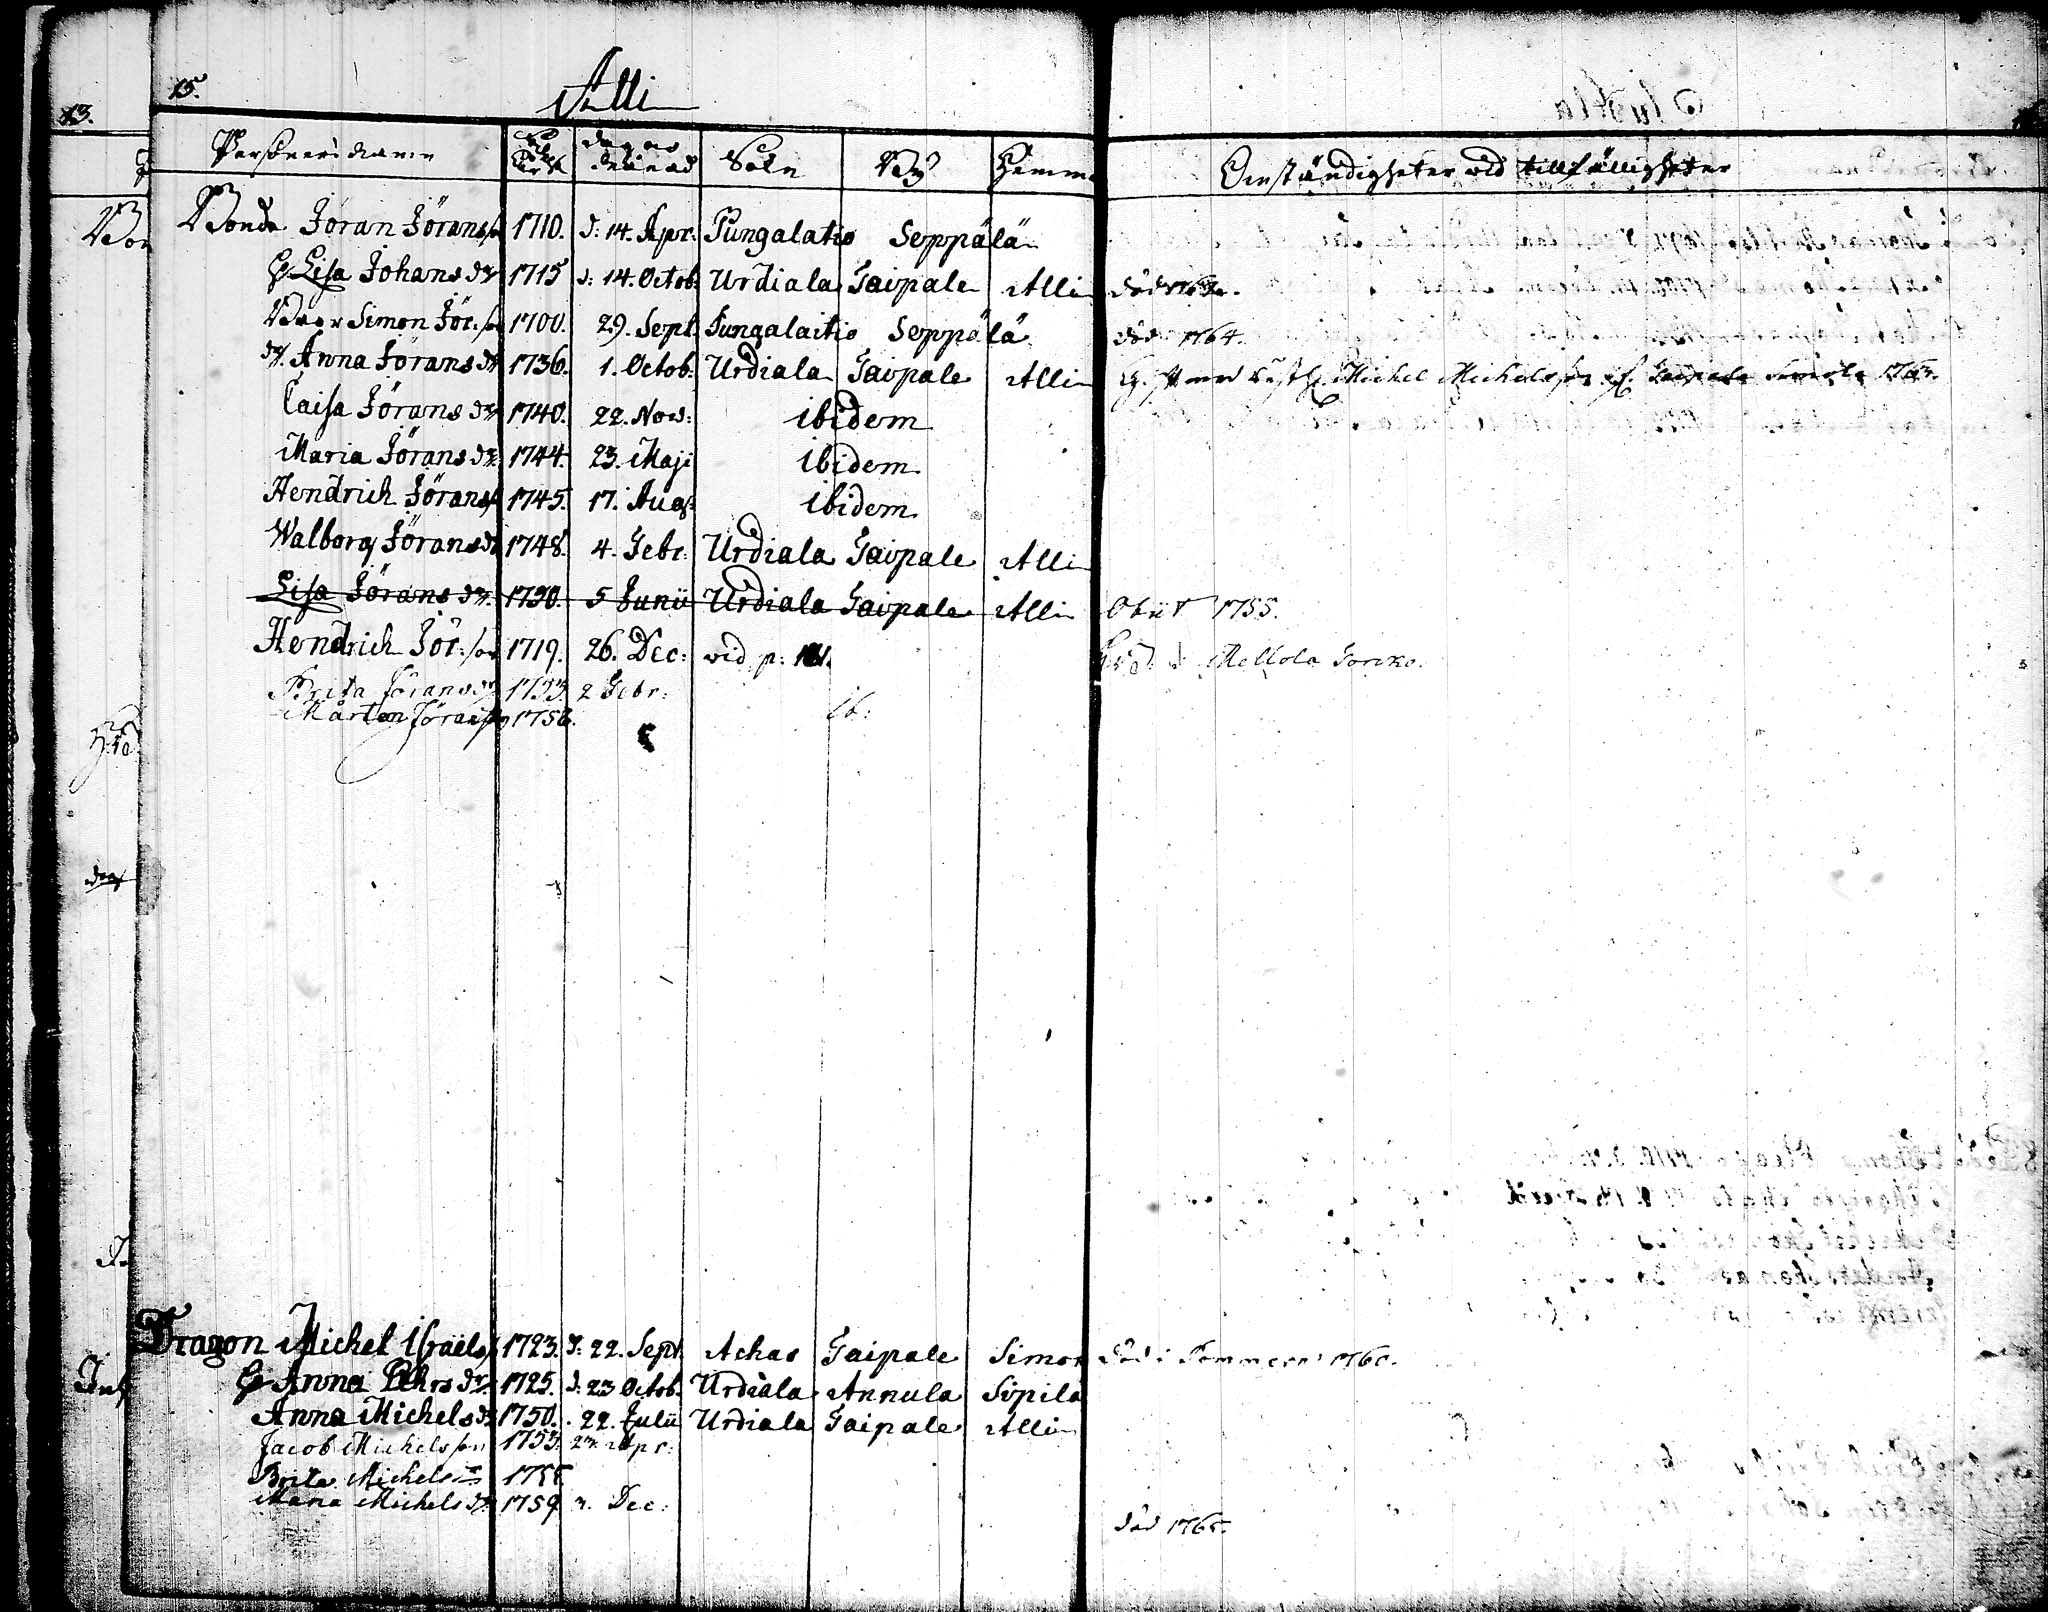 13.
15.
Alli
Personers namn Dag och Månad Sokn By Hemma
Omständigheter wid tillfälligheter
Bonde Jöran Jöransson 1710. d: 14. Apr: Pungalaitio Seppälä
H Lisa Johans dr 1715 d: 14. Octob: Urdiala Gaipale Alli död
Bror Simon Jör: son 1700. 29. Sept. Pungalaitio Seppälä död 1764.
dr. Anna Jörans dr 1736. 1. Octob: Urdiala Gaipale Alli Michel Michelsson Gaipale Simola
Caisa Jörans dr 1740. 22. Nov: ibidem
Maria Jörans dr 1744. 23. Maji ibidem
Hendrich Jörans 1745. 17. Aug: ibidem
Walborg Jörans dr 1748. 4. Febr: Urdiala Gaipale Alli
Lisa Jörans dr. 1750. 5 Junii Urdiala Gaipale Alli Obiit 1755.
Hendrich Jör: son 1719. 26. Dec: vid p: Mellola
Brita Jörans dr 1753 2 Febr:
Mårten Jöransson 1756. ib:
Dragon Michel Israels 1723. d: 22. Sept. Achas Gaipale Simon död i Pommern 1760.
H Anna Pehrs dr. 1725. d. 23 Octob. Urdiala Annula Sipilä
Anna Michels dr 1750. 22. Julii Urdiala Gaipale Alli
Jacob Michelsson 1753. Apr:
Brita Michels dr
Maria Michels dr 1759 Dec:
död